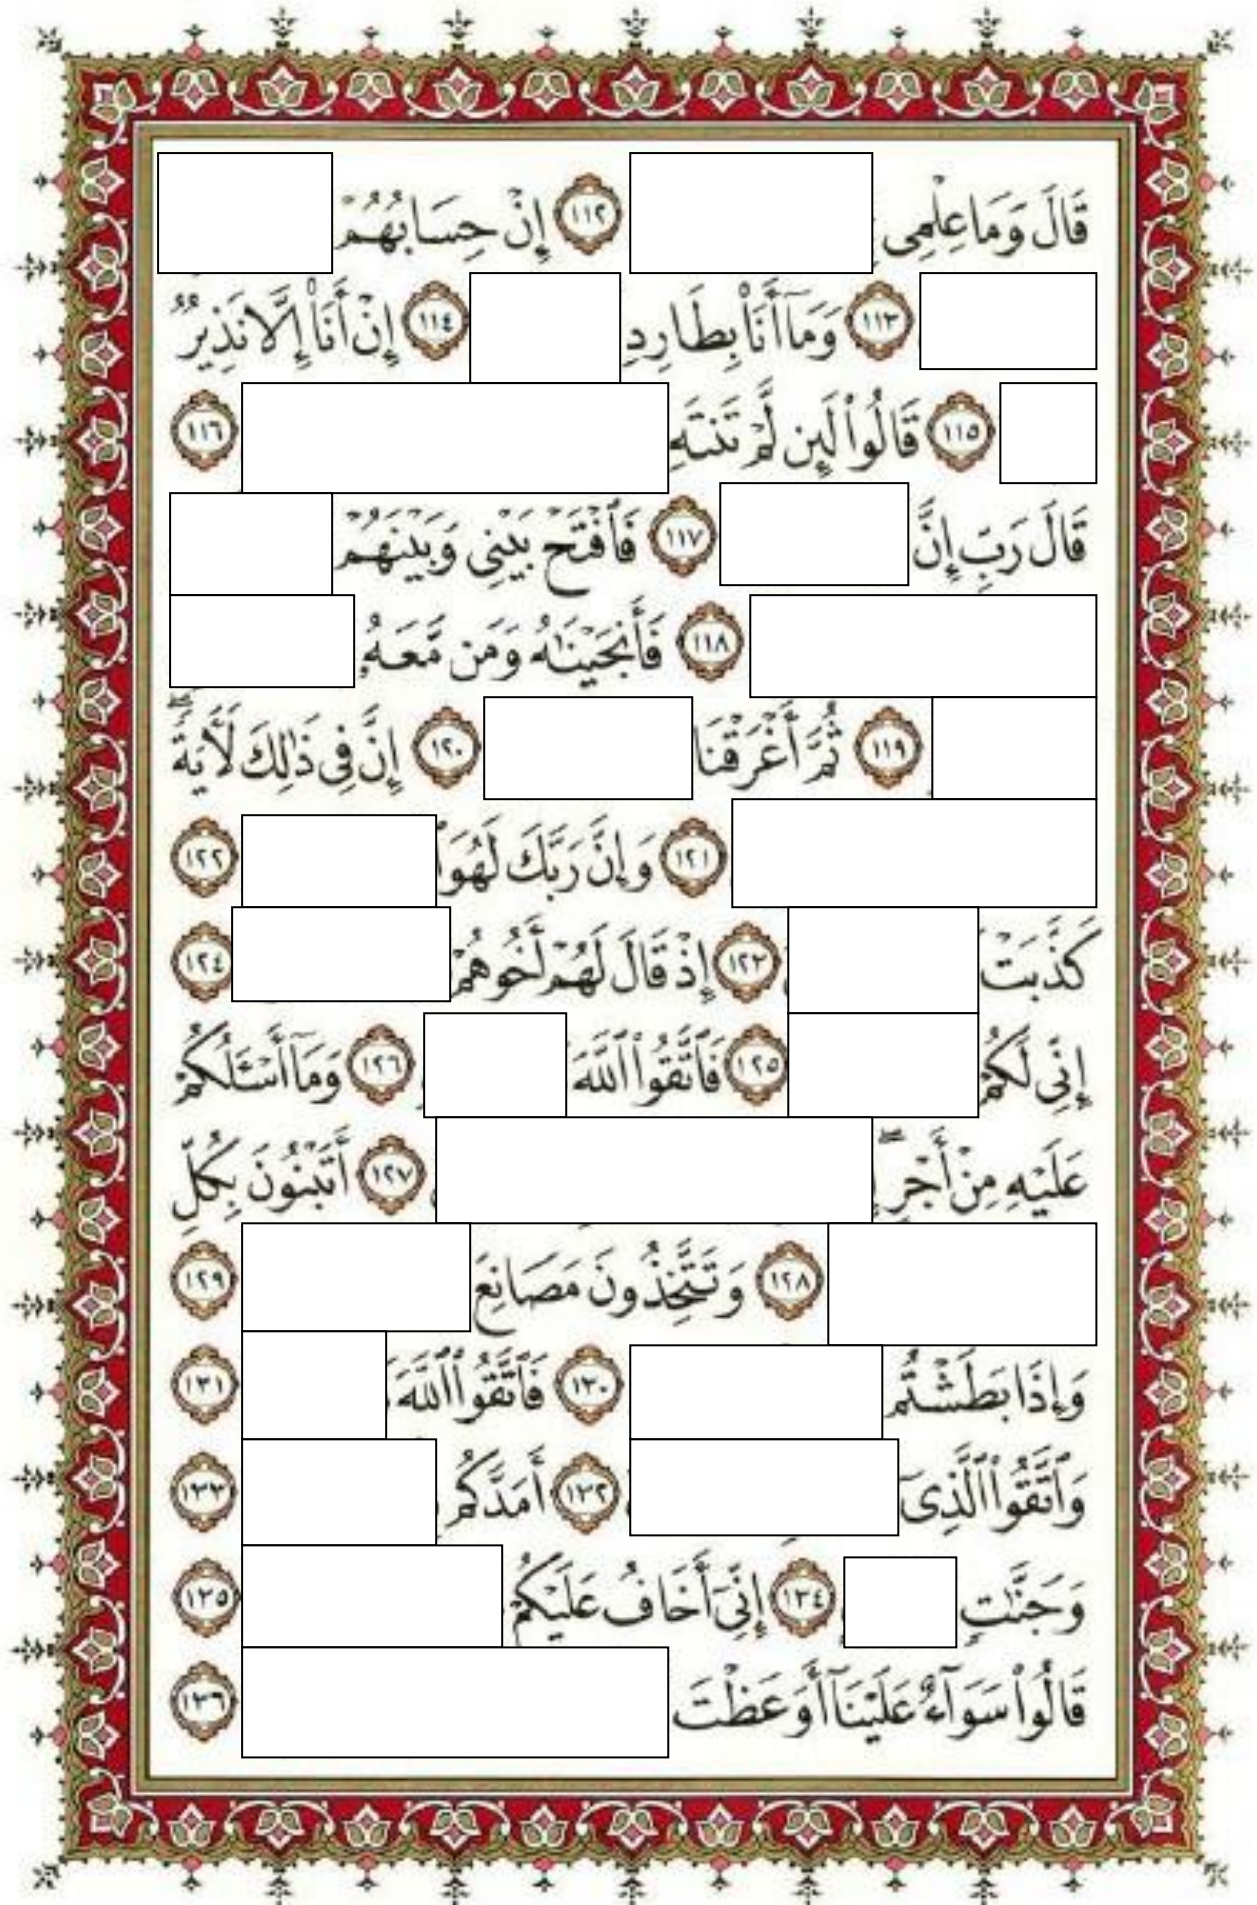 قَالَ وَمَا عِلْمِى ١١٢ إِنْ حِسَابُهُمْ
١١٣ وَمَآ أَنَا۠ بِطَارِدِ ١١٤ إِنْ أَنَا۠ إِلَّا نَذِيرٌ
١١٥ قَالُوا۟ لَئِن لَّمْ تَنتَهِ ١١٦
قَالَ رَبِّ إِنَّ ١١٧ فَٱفْتَحْ بَيْنِى وَبَيْنَهُمْ
١١٨ فَأَنجَيْنَٰهُ وَمَن مَّعَهُۥ
١١٩ ثُمَّ أَغْرَقْنَا ١٢٠ إِنَّ فِى ذَٰلِكَ لَأَيَةً ۖ
١٢١ وَإِنَّ رَبَّكَ لَهُوَ ١٢٢
كَذَّبَتْ ١٢٣ إِذْ قَالَ لَهُمْ أَخُوهُمْ ١٢٤
إِنِّى لَكُمْ ١٢٥ فَٱتَّقُوا۟ ٱللَّهَ ١٢٦ وَمَآ أَسْـَٔلُكُمْ
عَلَيْهِ مِنْ أَجْرٍ ۖ ١٢٧ أَتَبْنُونَ بِكُلِّ
١٢٨ وَتَتَّخِذُونَ مَصَانِعَ ١٢٩
وَإِذَا بَطَشْتُم ١٣٠ فَٱتَّقُوا۟ ٱللَّهَ ١٣١
وَٱتَّقُوا۟ ٱلَّذِىٓ ١٣٢ أَمَدَّكُم ١٣٣
وَجَنَّٰتٍ ١٣٤ إِنِّىٓ أَخَافُ عَلَيْكُمْ ١٣٥
قَالُوا۟ سَوَآءٌ عَلَيْنَآ أَوَعَظْتَ ١٣٦